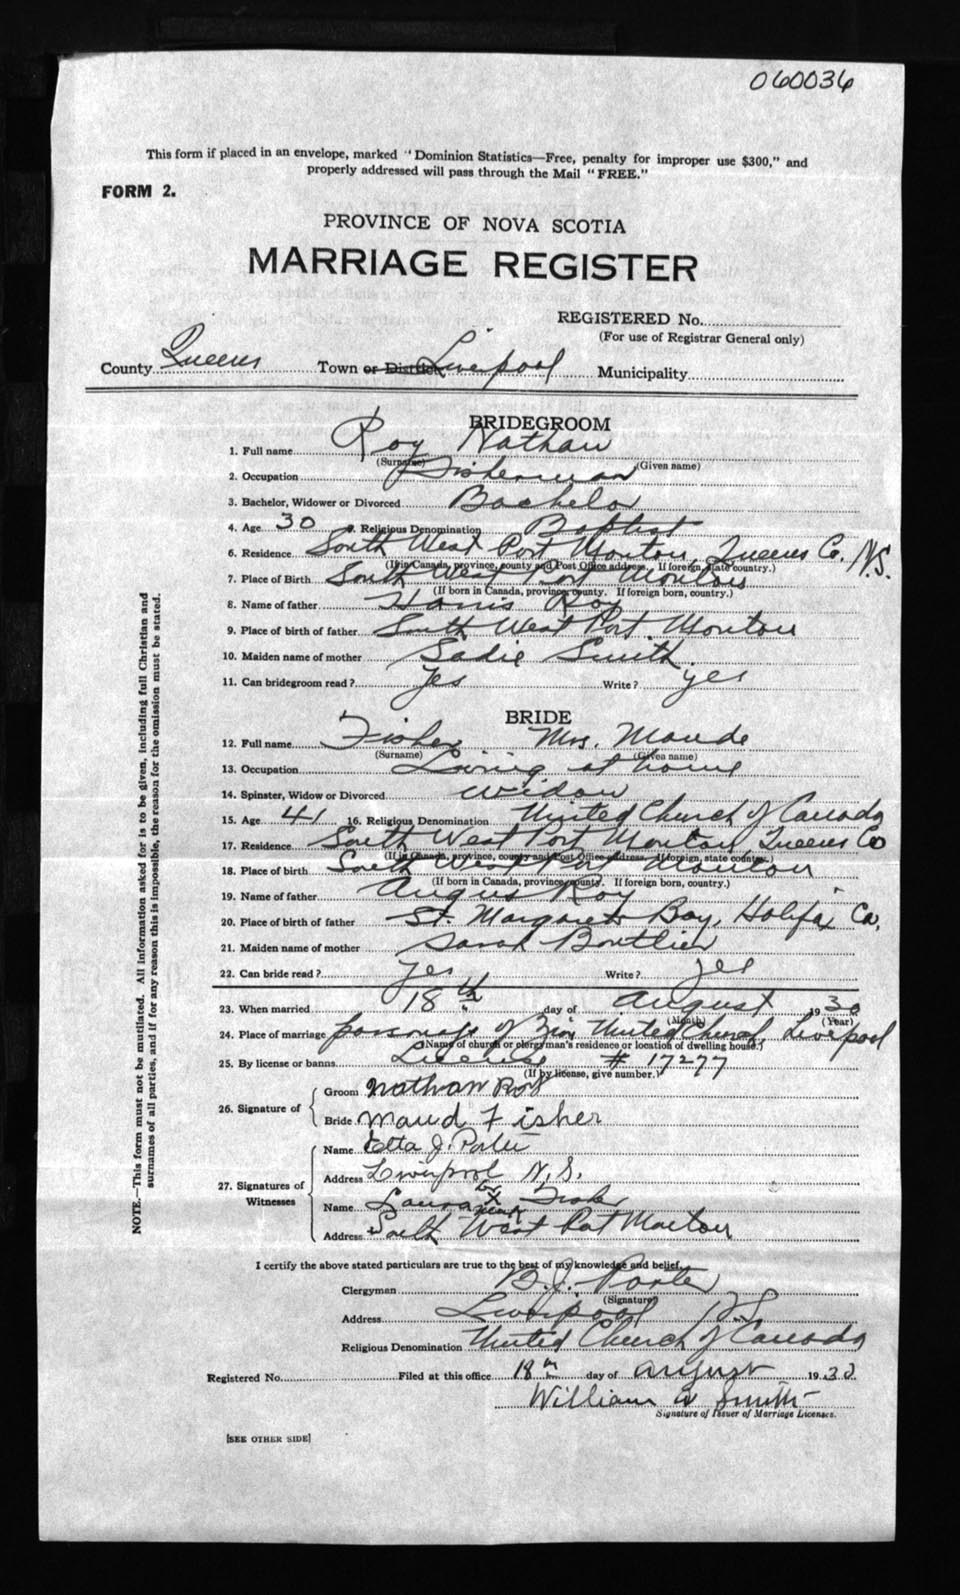 060036
This form if placed in an envelope, marked "Dominion Statistics—Free, penalty for improper use $300," and
properly addressed will pass through the Mail "FREE."
FORM 2.
PROVINCE OF NOVA SCOTIA
MARRIAGE REGISTER
REGISTERED No.
(For use of Registrar General only)
County Queens Town or District Liverpool Municipality
BRIDEGROOM
1. Full name Roy Nathan
(Surname) (Given name)
2. Occupation Fisherman
3. Bachelor, Widower or Divorced Bachelor
4. Age 30 5. Religious Denomination Baptist
6. Residence South West Port Mouton, Queens Co. N.S.
(If in Canada, province, county and Post Office address. If foreign, state country.)
7. Place of Birth South West Port Mouton
(If born in Canada, province, county. If foreign born, country.)
8. Name of father Harris Roy
9. Place of birth of father South West Port Mouton
10. Maiden name of mother Sadie Smith
11. Can bridegroom read? Yes Write? yes
BRIDE
12. Full name Fisher Mrs. Maude
(Surname) (Given name)
13. Occupation Living at home
14. Spinster, Widow or Divorced widow
15. Age 41 16. Religious Denomination United Church of Canada
17. Residence South West Port Mouton, Queens Co
(If in Canada, province, county and Post Office address. If foreign, state country.)
18. Place of birth South West Port Mouton
(If born in Canada, province, county. If foreign born, country.)
19. Name of father Angus Roy
20. Place of birth of father St. Margarets Bay, Halifax Co.
21. Maiden name of mother Sarah Boutlier
22. Can bride read? yes Write? yes
23. When married 18th day of August 1930
(Month) (Year)
24. Place of marriage parsonage of Zion United Church, Liverpool
(Name of church or clergyman's residence or location of dwelling house.)
25. By license or banns License # 17277
(If by license, give number.)
26. Signature of Groom Nathan Roy
Bride Maud Fisher
27. Signatures of Witnesses Name Etta J. Porter
Address Liverpool N.S.
Name Laura X mark
Address South West Port Mouton
I certify the above stated particulars are true to the best of my knowledge and belief.
Clergyman B. J. Porter
(Signature)
Address Liverpool N.S.
Religious Denomination United Church of Canada
Registered No. Filed at this office 18th day of August 1930.
William W Smith
Signature of Issuer of Marriage Licenses.
[SEE OTHER SIDE]
NOTE.—This form must not be mutilated. All information asked for is to be given, including full Christian and
surnames of all parties, and if for any reason this is impossible, the reason for the omission must be stated.